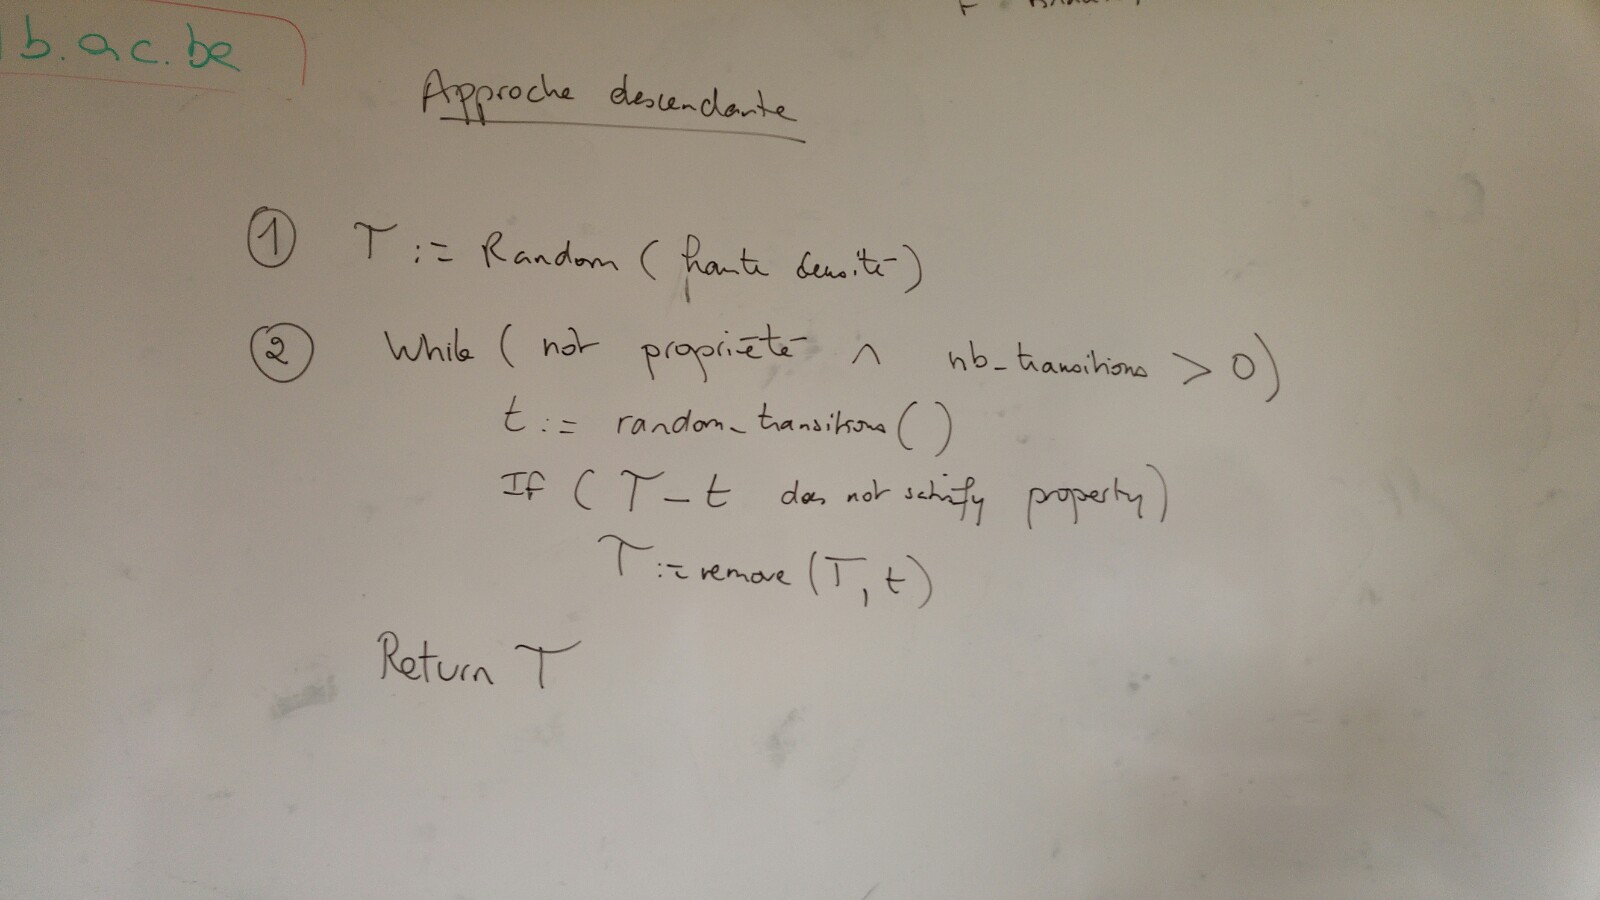 b.ac.be
Approche descendante
① T := Random ( haute densité )
② While ( not propriété ∧ nb_transitions > 0 )
t := random_transitions ( )
If ( T - t does not satisfy property )
T := remove ( T, t )
Return T